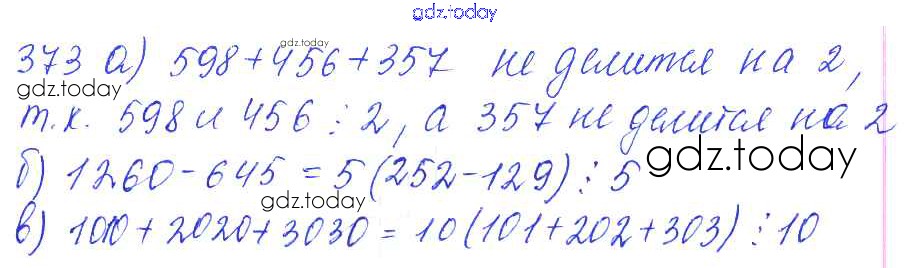 gdz.today
373 а) 598+456+357 не делится на 2,
gdz.today
gdz.today
т.к. 598 и 456 ⋮ 2, а 357 не делится на 2
б) 1260-645 = 5(252-129) ⋮ 5
gdz.today
gdz.today
в) 1010+2020+3030 = 10(101+202+303) ⋮ 10